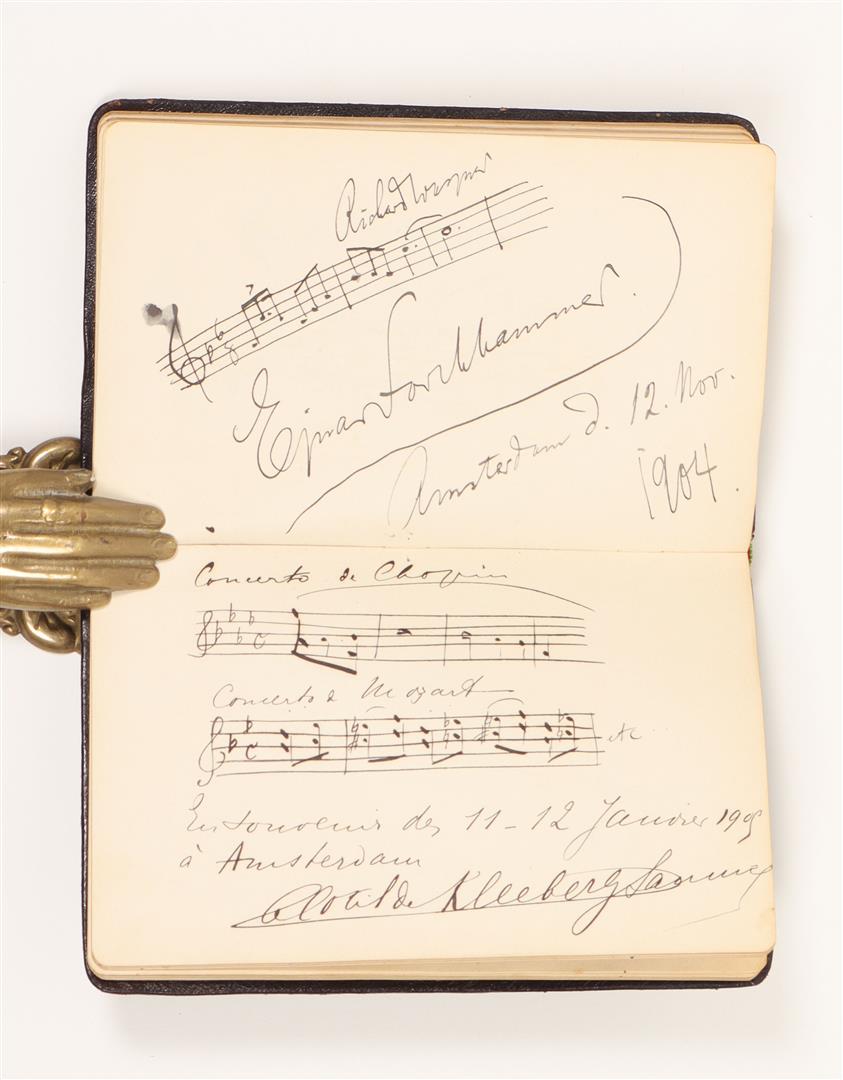 Richard Wagner
Ejnar Forchhammer.
Amsterdam d. 12. Nov.
1904.
Concerto de Chopin
Concerto de Mozart
etc
En souvenir des 11-12 Janvier 1905
à Amsterdam
Clotilde Kleeberg Samuel